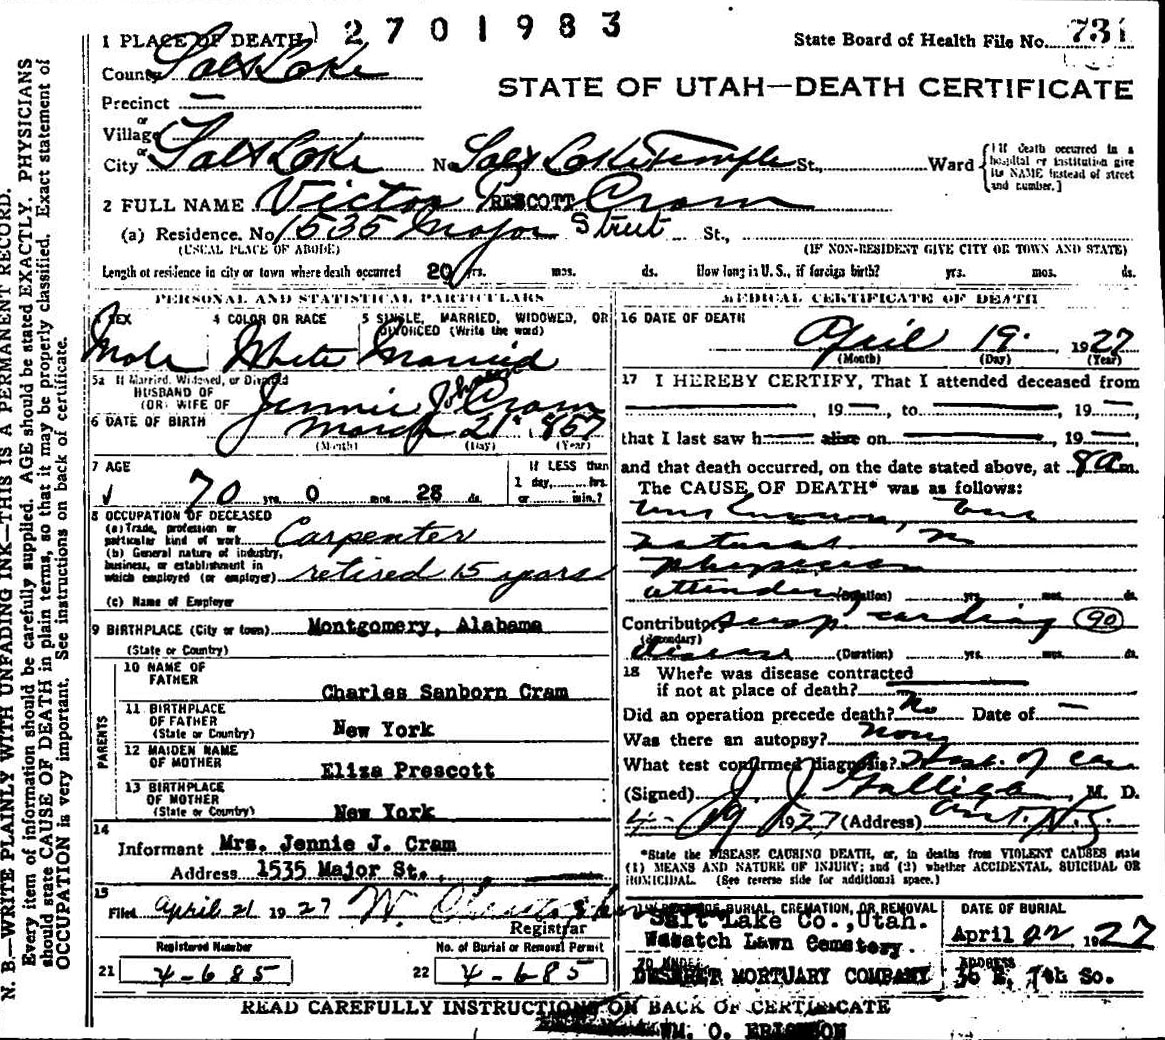 2 7 0 1 9 8 3
1 PLACE OF DEATH
State Board of Health File No. 731
County Salt Lake
STATE OF UTAH—DEATH CERTIFICATE
Precinct —
or
Village
or
City Salt Lake No. Salt Lake Temple St., Ward
[If death occurred in a hospital or institution give its NAME instead of street and number.]
2 FULL NAME Victor PRESCOTT Cram
(a) Residence. No. 1535 Major Street St.,
(USUAL PLACE OF ABODE) (IF NON-RESIDENT GIVE CITY OR TOWN AND STATE)
Length of residence in city or town where death occurred 20 yrs. mos. ds. How long in U. S., if foreign birth? yrs. mos. ds.
PERSONAL AND STATISTICAL PARTICULARS
3 SEX 4 COLOR OR RACE 5 SINGLE, MARRIED, WIDOWED, OR DIVORCED (Write the word)
Male White Married
5a If Married, Widowed, or Divorced
HUSBAND OF
(OR) WIFE OF Jennie Cram
6 DATE OF BIRTH March 21 1857
(Month) (Day) (Year)
7 AGE
70 yrs. 0 mos. 28 ds.
If LESS than
1 day, hrs.
or min.?
8 OCCUPATION OF DECEASED
(a) Trade, profession or
particular kind of work Carpenter
(b) General nature of industry,
business, or establishment in
which employed (or employer) retired 15 years
(c) Name of Employer
9 BIRTHPLACE (City or town) Montgomery, Alabama
(State or Country)
PARENTS
10 NAME OF
FATHER Charles Sanborn Cram
11 BIRTHPLACE
OF FATHER
(State or Country) New York
12 MAIDEN NAME
OF MOTHER Eliza Prescott
13 BIRTHPLACE
OF MOTHER
(State or Country) New York
14
Informant Mrs. Jennie J. Cram
Address 1535 Major St.
15
Filed April 21 1927 W.
Registrar
Registered Number No. of Burial or Removal Permit
21 4-685 22 4-685
MEDICAL CERTIFICATE OF DEATH
16 DATE OF DEATH
April 19. 1927
(Month) (Day) (Year)
17 I HEREBY CERTIFY, That I attended deceased from
, 19 , to , 19 ,
that I last saw h alive on , 19 ,
and that death occurred, on the date stated above, at 8 a m.
The CAUSE OF DEATH* was as follows:
Unknown, but
natural. No
physician
attended (Duration) yrs. mos. ds.
Contributory susp. cardiac 90
(Secondary)
disease (Duration) yrs. mos. ds.
18 Where was disease contracted
if not at place of death?
Did an operation precede death? No Date of —
Was there an autopsy? None
What test confirmed diagnosis? Hist. of case
(Signed) J. J. Galligan, M. D.
4-19 1927 (Address)
*State the DISEASE CAUSING DEATH, or, in deaths from VIOLENT CAUSES state
(1) MEANS AND NATURE OF INJURY; and (2) whether ACCIDENTAL, SUICIDAL OR
HOMICIDAL. (See reverse side for additional space.)
BURIAL, CREMATION, OR REMOVAL DATE OF BURIAL
Salt Lake Co., Utah.
Wasatch Lawn Cemetery. April 22 1927
ADDRESS
DESERET MORTUARY COMPANY 36 E. 7th So.
READ CAREFULLY INSTRUCTIONS ON BACK OF CERTIFICATE
WM. O. ERICKSON
N. B.—WRITE PLAINLY WITH UNFADING INK—THIS IS A PERMANENT RECORD.
Every item of information should be carefully supplied. AGE should be stated EXACTLY. PHYSICIANS
should state CAUSE OF DEATH in plain terms, so that it may be properly classified. Exact statement of
OCCUPATION is very important. See instructions on back of certificate.